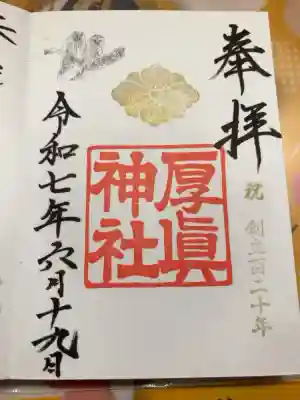 奉拝
祝 創立百二十年
厚眞
神社
令和七年六月十九日